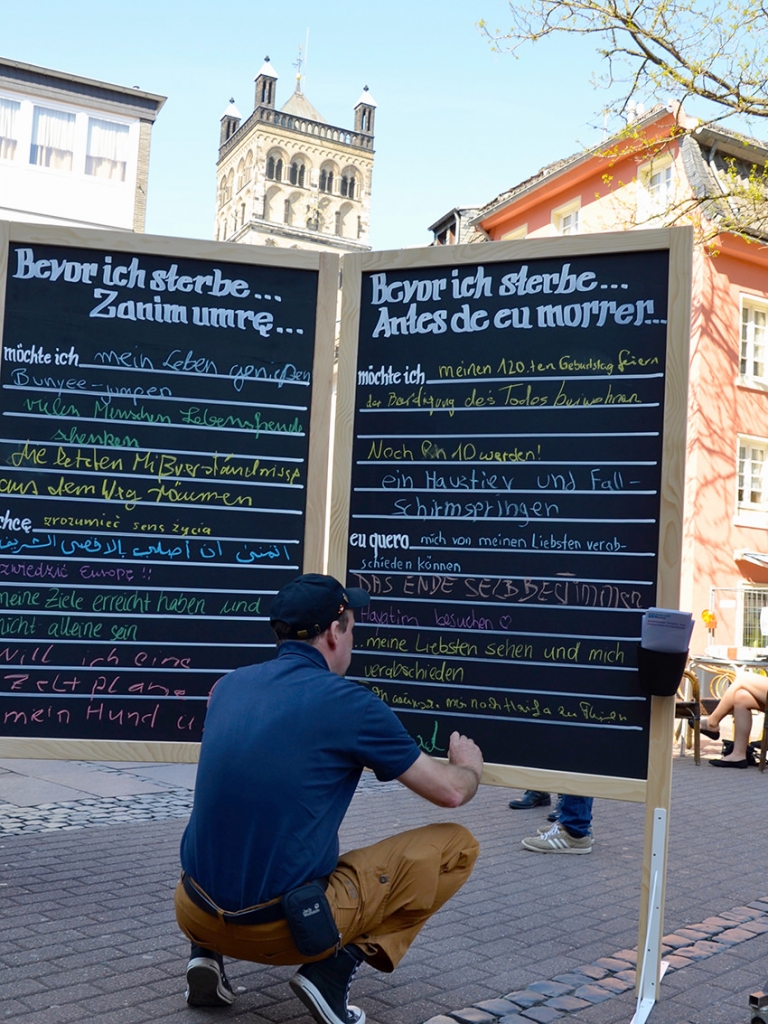 Bevor ich sterbe...
Zanim umrę...
möchte ich mein Leben genießen
Bungee-jumpen
vielen Menschen Lebensfreude
schenken
die letzten Mißverständnisse
aus dem Weg räumen
chcę zrozumieć sens życia
اتمنى ان اصلي بالاقصى الشريف
zwiedzić Europę !!
meine Ziele erreicht haben und
nicht alleine sein
Will ich eine
Zelt plane
mein Hund u
Bevor ich sterbe...
Antes de eu morrer...
möchte ich meinen 120.ten Geburtstag feiern
der Beerdigung des Todes beiwohnen
Noch 10 werden!
ein Haustier und Fall-
Schirmspringen
eu quero mich von meinen Liebsten verab-
schieden können
DAS ENDE SELBBESTIMMEN
besuchen ♡
...meine Liebsten sehen und mich
verabschieden
mir nach Haifa zu